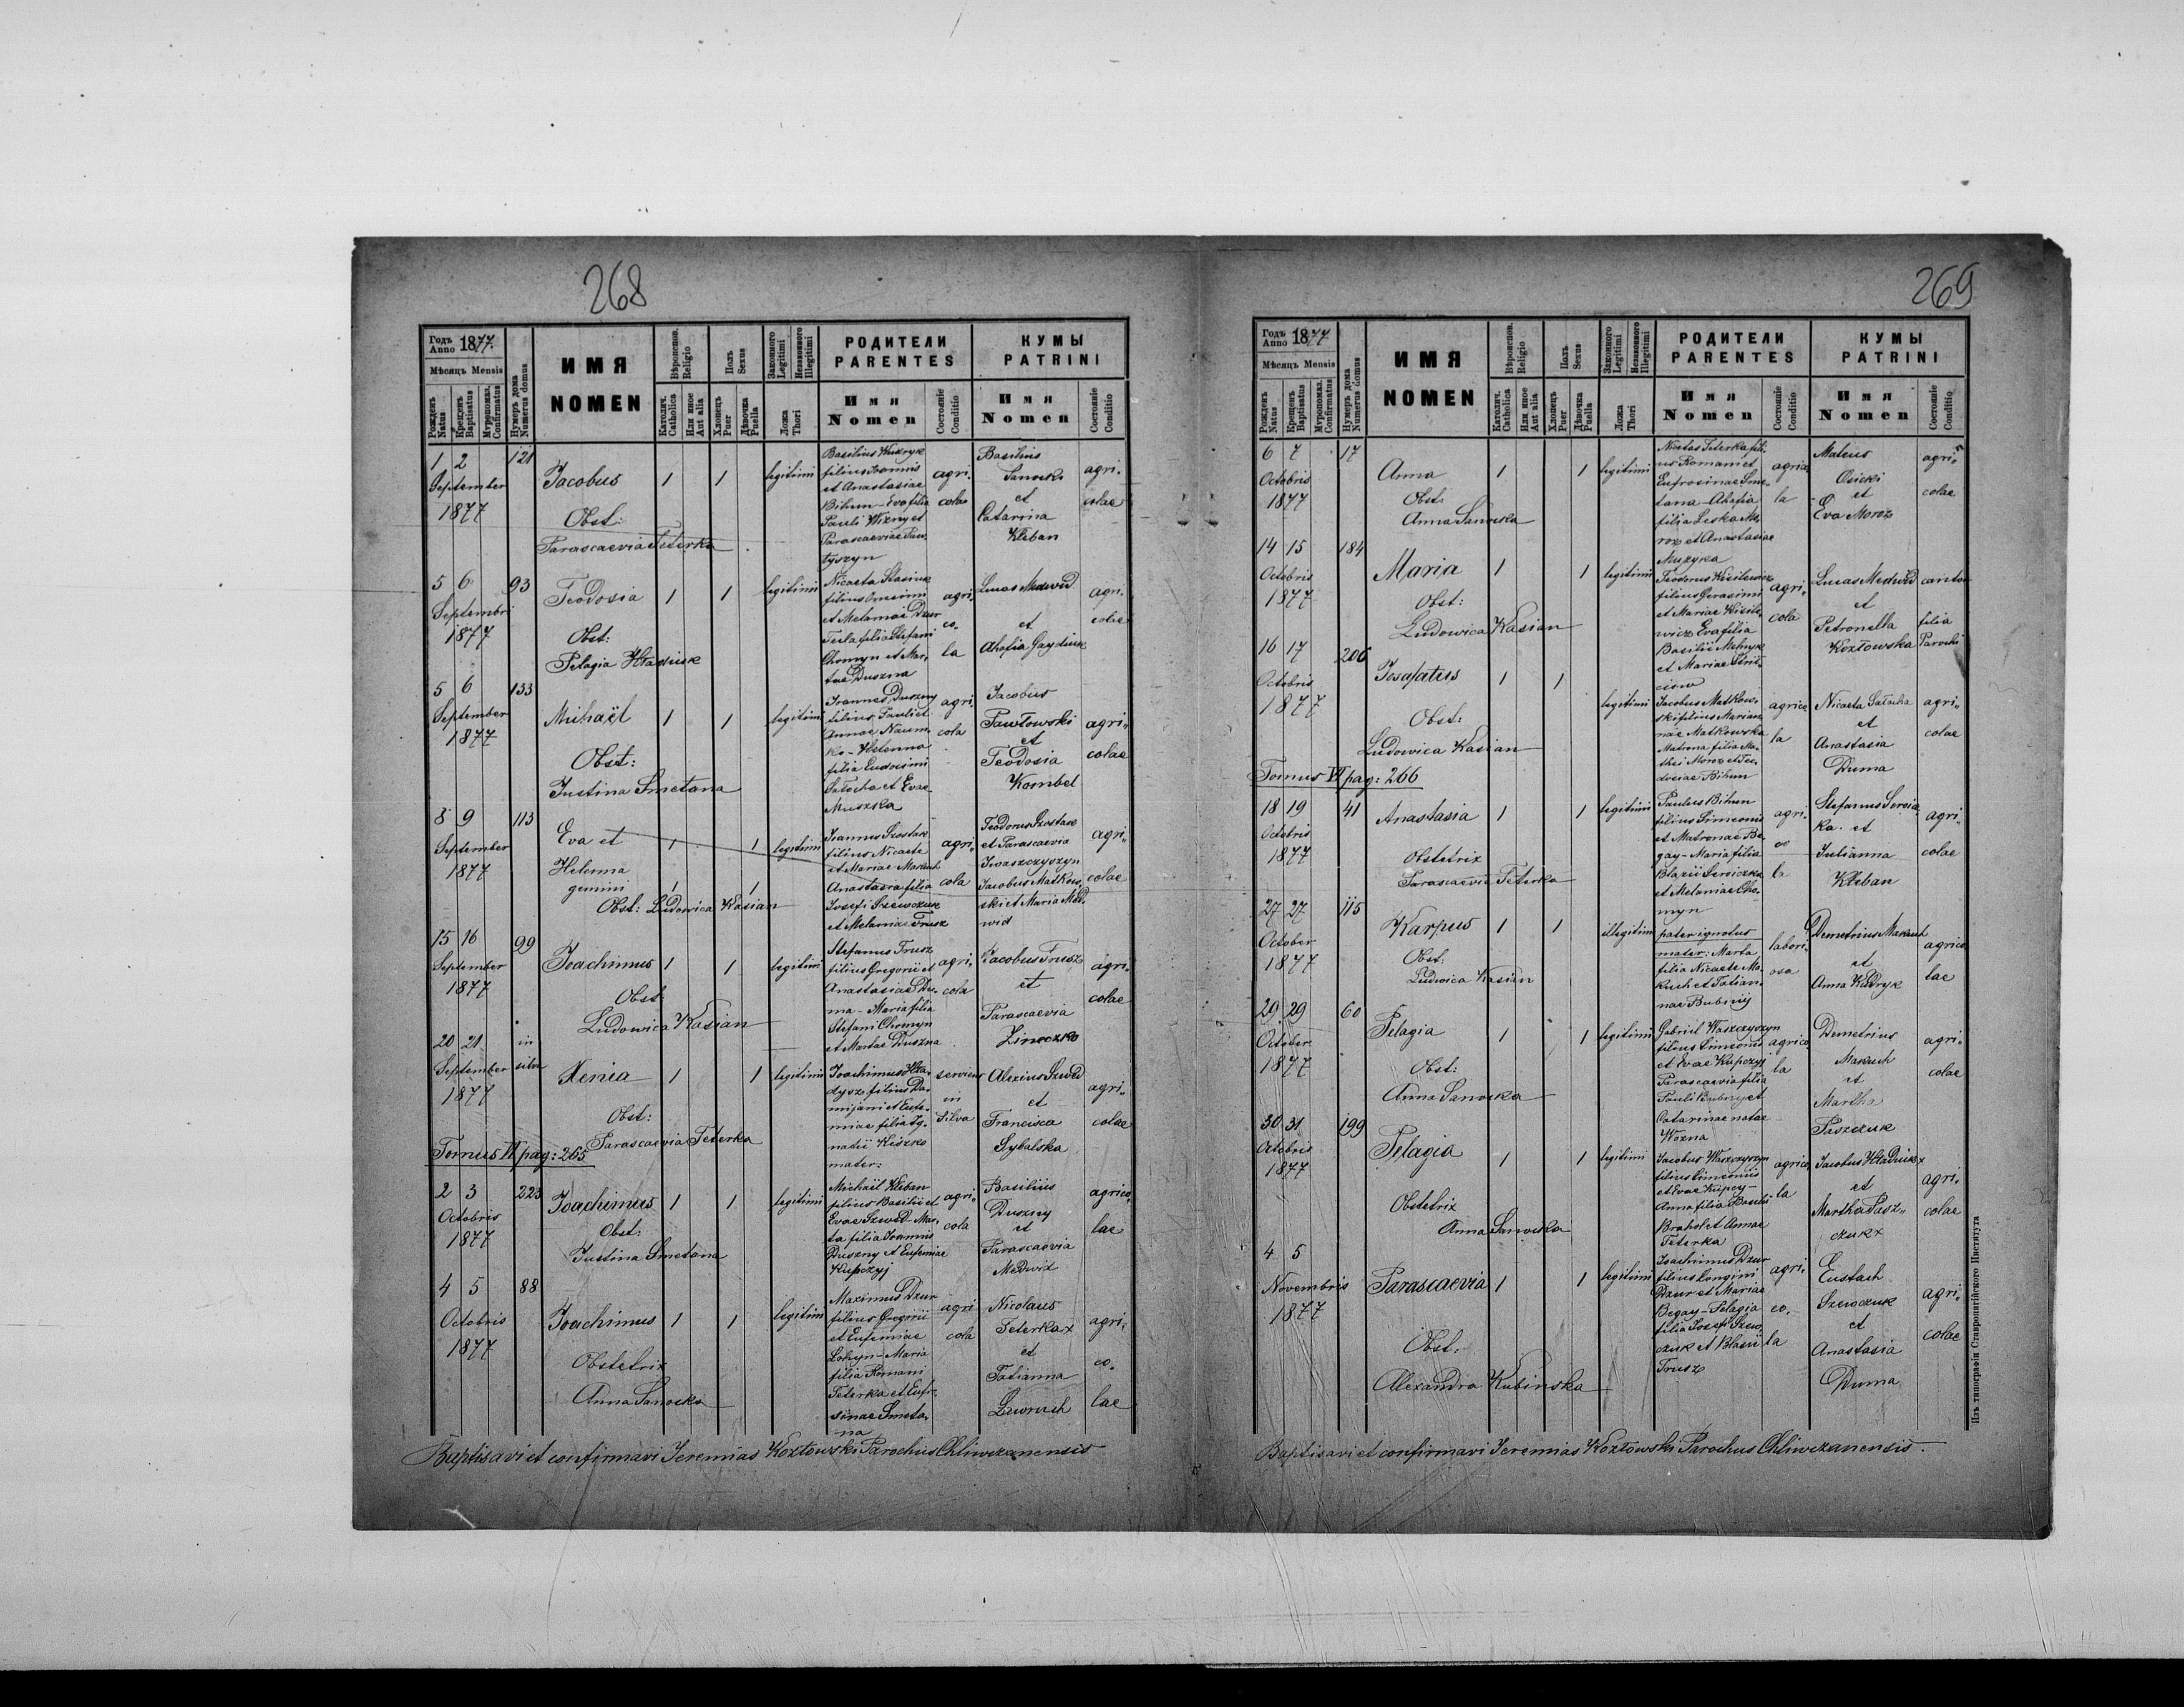 268
Годъ Anno 1877.
Мѣсяцъ Mensis
Рожденъ Natus
Крещенъ Baptisatus
Мѵропомаз. Confirmatus
Нумеръ дома Numerus domus
ИМЯ
NOMEN
Вѣроисповѣд. Religio
Католич. Catholica
Или иное Aut alia
Полъ Sexus
Хлопецъ Puer
Дѣвочка Puella
Законного Legitimi
Незаконного Illegitimi
Ложа Thori
РОДИТЕЛИ
PARENTES
Имя
Nomen
Состояніе Conditio
КУМЫ
PATRINI
Имя
Nomen
Состояніе Conditio
1 2 September 1877
121
Jacobus
Obst:
Parascaevia Teterka
1 1 legitimi
filius Joannis
et Anastasiae
Bihun - Eva filia
Pauli Wizny et
Parascaeviae Pan
tyszyn
agri-
cola
Basilius
Sanocki
et
Catarina
Kleban
agri-
colae
5 6 Septembri 1877
93
Teodosia
Obst:
Pelagia Hladiuk
1 1 legitimi
Nicaeta Stasiuk
filius Onesimi
et Melaniae Dzur
Tecla filia Stefani
Chomyn et Mar-
tae Duszna
agri-
co-
la
Lucas Medwid
et
Ahafia Gaydiuk
agri-
colae
5 6 September 1877
133
Michaël
Obst:
Justina Smetana
1 1 legitimi
Joannes Duszny
filius Pauli et
Annae Naum-
ko - Helenna
filia Eudocimi
Sałocha et Evae
Muszka
agri-
cola
Jacobus
Pawłowski
et
Teodosia
Kombel
agri-
colae
8 9 September 1877
113
Eva et
Helenna
gemini
Obst: Ludowica Kasian
1 1 legitimi
1 1
Joannes Szostak
filius Nicaetae
et Mariae Makuch
Anastasia filia
Josefi Szewczuk
et Melaniae Trusz
agri-
cola
Teodorus Szostak
et Parascaevia
Iwaszczyszyn
Jacobus Matkow-
ski et Maria Med-
wid
agri-
colae
15 16 September 1877
99
Joachimus
Obst
Ludowica Kasian
1 1 legitimi
Stefanus Trusz
filius Gregorii et
Anastasiae Du-
ma - Maria filia
Stefani Chomyn
et Martae Duszna
agri-
cola
Jacobus Trusz
et
Parascaevia
Zinoczko
agri-
colae
20 21 September 1877
in silva
Xenia
Obst:
Parascaevia Teterka
1 1 legitimi
Joachimus Hła-
dysz filius Da-
mijani et Eufe-
miae filia Ig-
natii Kiszko
mater:
serviens
in
Silva
Alexius Szwed
et
Francisca
Sybalska
agri-
colae
Tomus VI pag: 265
2 3 Octobris 1877
223
Joachimus
Obst:
Justina Smetana
1 1 legitimi
Michaël Kleban
filius Basilii et
Evae Szewd - Mar-
ta filia Joannis
Duszny et Eufemiae
Kupczyj
agri-
cola
Basilius
Duszny
et
Parascaevia
Medwid
agrico-
lae
4 5 Octobris 1877
88
Joachimus
Obstetrix
Anna Sanocka
1 1 legitimi
Maximus Dzur
filius Gregorii
et Eufemiae
Lohyn - Maria
filia Romani
Teterka et Eufr-
sinae Smeta-
na
agri
cola
Nicolaus
Teterka x
et
Tatianna
Ławruch
agri-
co-
lae
Baptisavi et confirmavi Jeremias Kozłowski Parochus Chliwczanensis
269
Годъ Anno 1877
Мѣсяцъ Mensis
Рожденъ Natus
Крещенъ Baptisatus
Мѵропомаз. Confirmatus
Нумеръ дома Numerus domus
ИМЯ
NOMEN
Вѣроисповѣд. Religio
Католич. Catholica
Или иное Aut alia
Полъ Sexus
Хлопецъ Puer
Дѣвочка Puella
Законного Legitimi
Незаконного Illegitimi
Ложа Thori
РОДИТЕЛИ
PARENTES
Имя
Nomen
Состояніе Conditio
КУМЫ
PATRINI
Имя
Nomen
Состояніе Conditio
6 7 Octobris 1877
17
Anna
Obst:
Anna Sanocka
1 1 legitimi
Nicetas Teterka fili-
us Romani et
Eufrosinae Sme-
tana - Ahafia
filia Leska Mo-
roz et Anastasiae
Muzyka
agrico-
la
Mateus
Osicki
et
Eva Moroz
agri-
colae
14 15 Octobris 1877
184
Maria
Obst:
Ludowica Kasian
1 1 legitimi
Teodorus Kisilewicz
filius Gerasimi
et Mariae Kisile-
wicz Eva filia
Basilii Melnyk
et Mariae
agri-
cola
Lucas Medwid
et
Petronella
Kozłowska
cantor
filia
Parochi
16 17 Octobris 1877
206
Josafatus
Obst:
Ludowica Kasian
1 1 legitimi
Jacobus Matkow-
ski filius Marian-
nae Matkowska
Matrona filia Ma-
thei Moroz et Teo-
dosiae Bihun
agrico
la
Nicaeta Sałocha
et
Anastasia
Duma
agri-
colae
Tomus VI pag: 266
18 19 Octobris 1877
41
Anastasia
Obstetrix
Parascaevia Teterka
1 1 legitimi
Paulus Bihun
filius Simeonis
et Matronae Be-
gay - Maria filia
Blazii Seroiczka
et Melaniae Cho-
myn
agri-
co
la
Stefanus Seroicz
ka et
Julianna
Kleban
agri-
colae
27 27 October 1877
115
Karpus
Obst:
Ludwica Kasian
1 1 illegitim
pater ignotus
mater: Marta
filia Nicaetae Ma-
kuch et Tatian-
nae Bubnij
labori-
osa
Demetrius Makuch
et
Anna Kudryk
agrico
lae
29 29 October 1877
60
Pelagia
Obst:
Anna Sanocka
1 1 legitimi
Gabriel Waszczyszyn
filius Simeonis
et Evae Kupczyj
Parascaevia filia
Pauli Bubny et
Catarinae natae
Wozna
agrico
la
Demetrius
Makuch
et
Martha
Paszczuk
agri-
colae
30 31 Octobris 1877
199
Pelagia
Obstetrix
Anna Sanocka
1 1 legitimi
Jacobus Waszczyszyn
filius Simeonis
et Evae Kupczy -
Anna filia Basilii
Brahol et Annae
Teterka
agrico
la
Jacobus Hladiuk x
et
Martha Pasz-
czuk x
agri-
colae
4 5 Novembris 1877
Parascaevia
Obst:
Alexandra Kubinska
1 1 legitimi
Joachimus Dzur
filius Longini
Dzur et Mariae
Begay - Pelagia
filia Josefi Szew-
czuk et Blasii
Trusz
agri-
co-
la
Eustach
Szewczuk
et
Anastasia
Duma
agri-
colae
Baptisavi et confirmavi Jeremias Kozłowski Parochus Chliwczanensis.
Изъ типографіи Ставропигійского Института